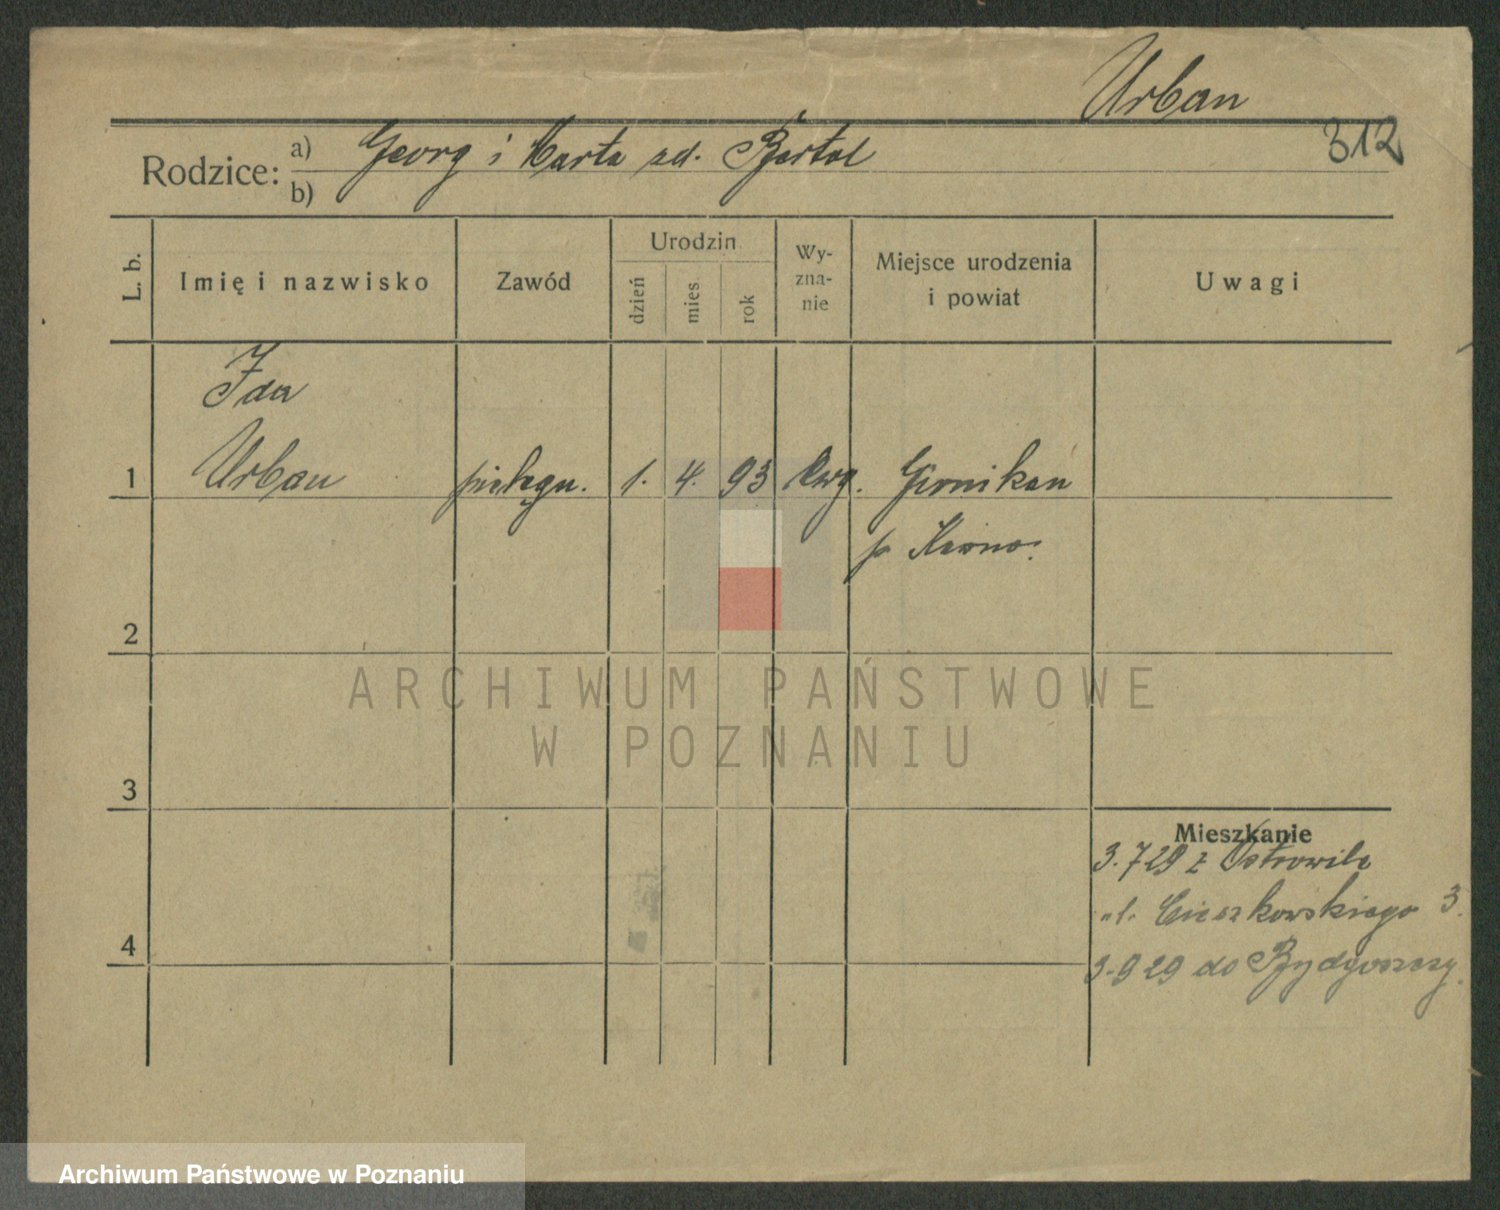 Urban
312
Rodzice: a) Georg i Marta zd. Bartol
b)
L. b.
Imię i nazwisko
Zawód
Urodzin
dzień
mies.
rok
Wy-
zna-
nie
Miejsce urodzenia
i powiat
Uwagi
Ida
1 Urban pielęgn. 1. 4. 93 ewg.
p.
2
ARCHIWUM PAŃSTWOWE
W POZNANIU
3
Mieszkanie
3.7 29 z
ul. Cieszkowskiego 3.
4
3.9 29 do Bydgoszczy.
Archiwum Państwowe w Poznaniu